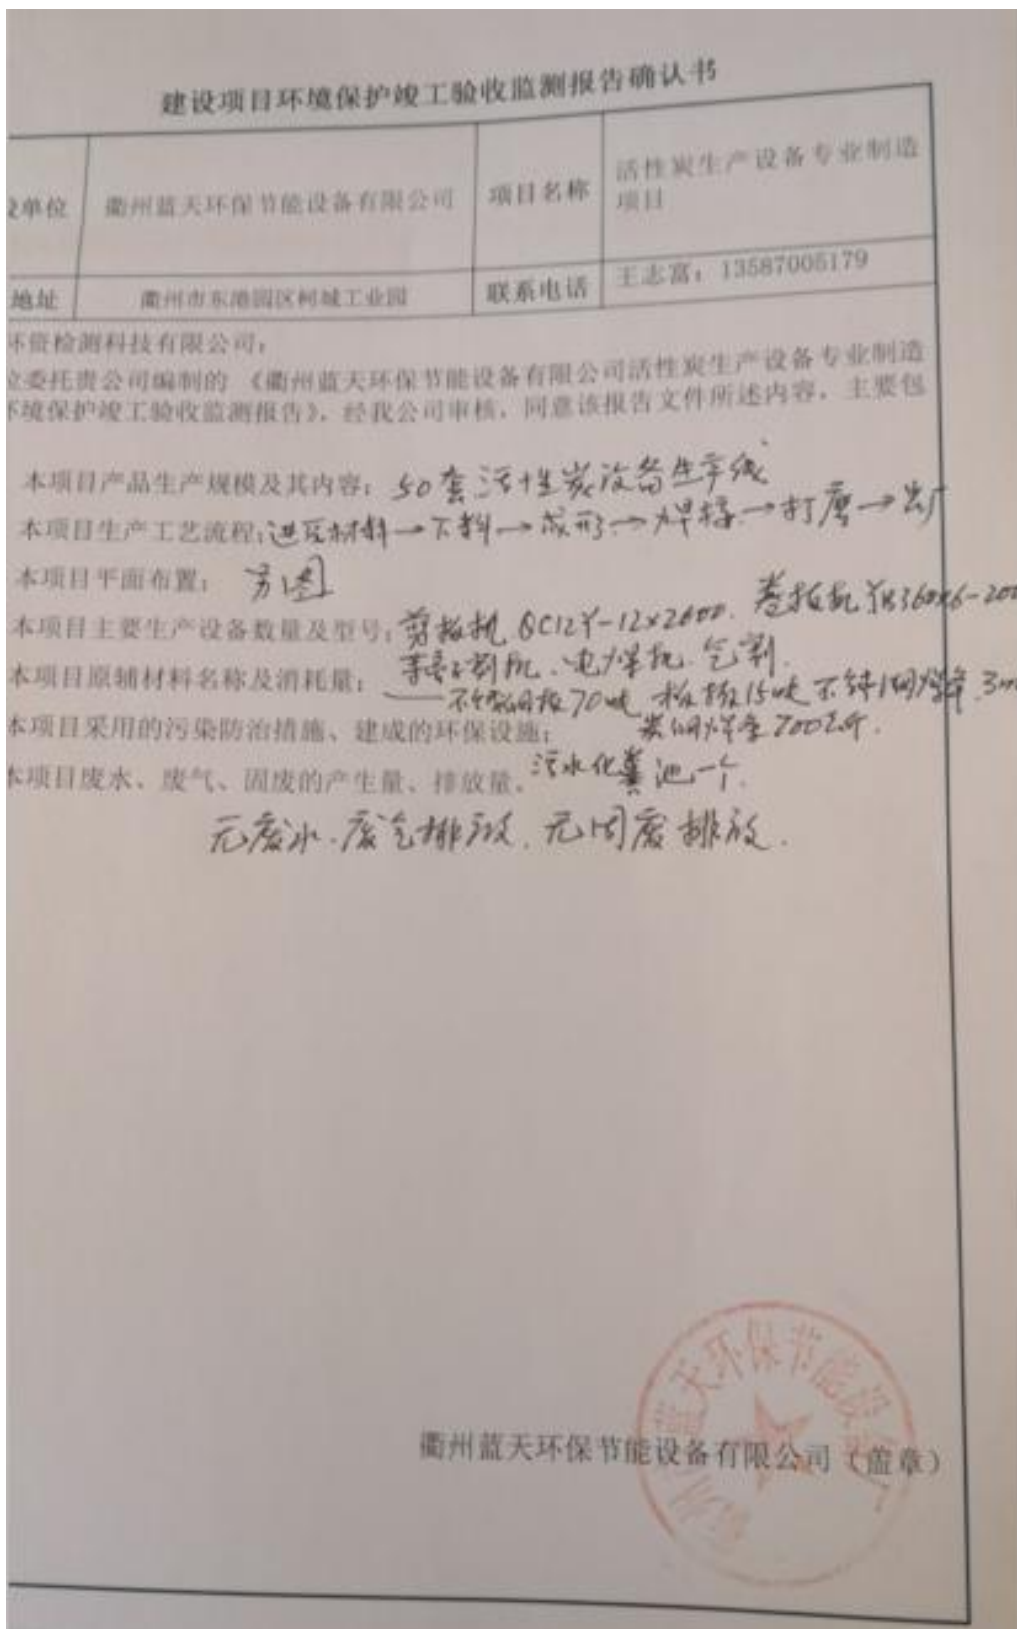 建设项目环境保护竣工验收监测报告确认书
单位 衢州蓝天环保节能设备有限公司 项目名称 活性炭生产设备专业制造
项目
地址 衢州市东港园区柯城工业园 联系电话 王志富：13587005179
环资检测科技有限公司：
位委托贵公司编制的 《衢州蓝天环保节能设备有限公司活性炭生产设备专业制造
环境保护竣工验收监测报告》，经我公司审核，同意该报告文件所述内容，主要包
本项目产品生产规模及其内容：50套活性炭设备生产线
本项目生产工艺流程：进压材料→下料→成形→焊接→打磨→出厂
本项目平面布置：另图
本项目主要生产设备数量及型号：剪板机 QC12Y-12x2600. 卷板机
割机、电焊机、气割.
本项目原辅材料名称及消耗量：不锈钢板70吨 15吨 不锈钢焊条
本项目采用的污染防治措施、建成的环保设施： 焊条200公斤.
污水化粪池一个.
本项目废水、废气、固废的产生量、排放量。
无废水.废气排放. 无固废排放.
衢州蓝天环保节能设备有限公司（盖章）
蓝天环保节能设